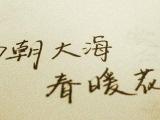 朝大海
春暖花